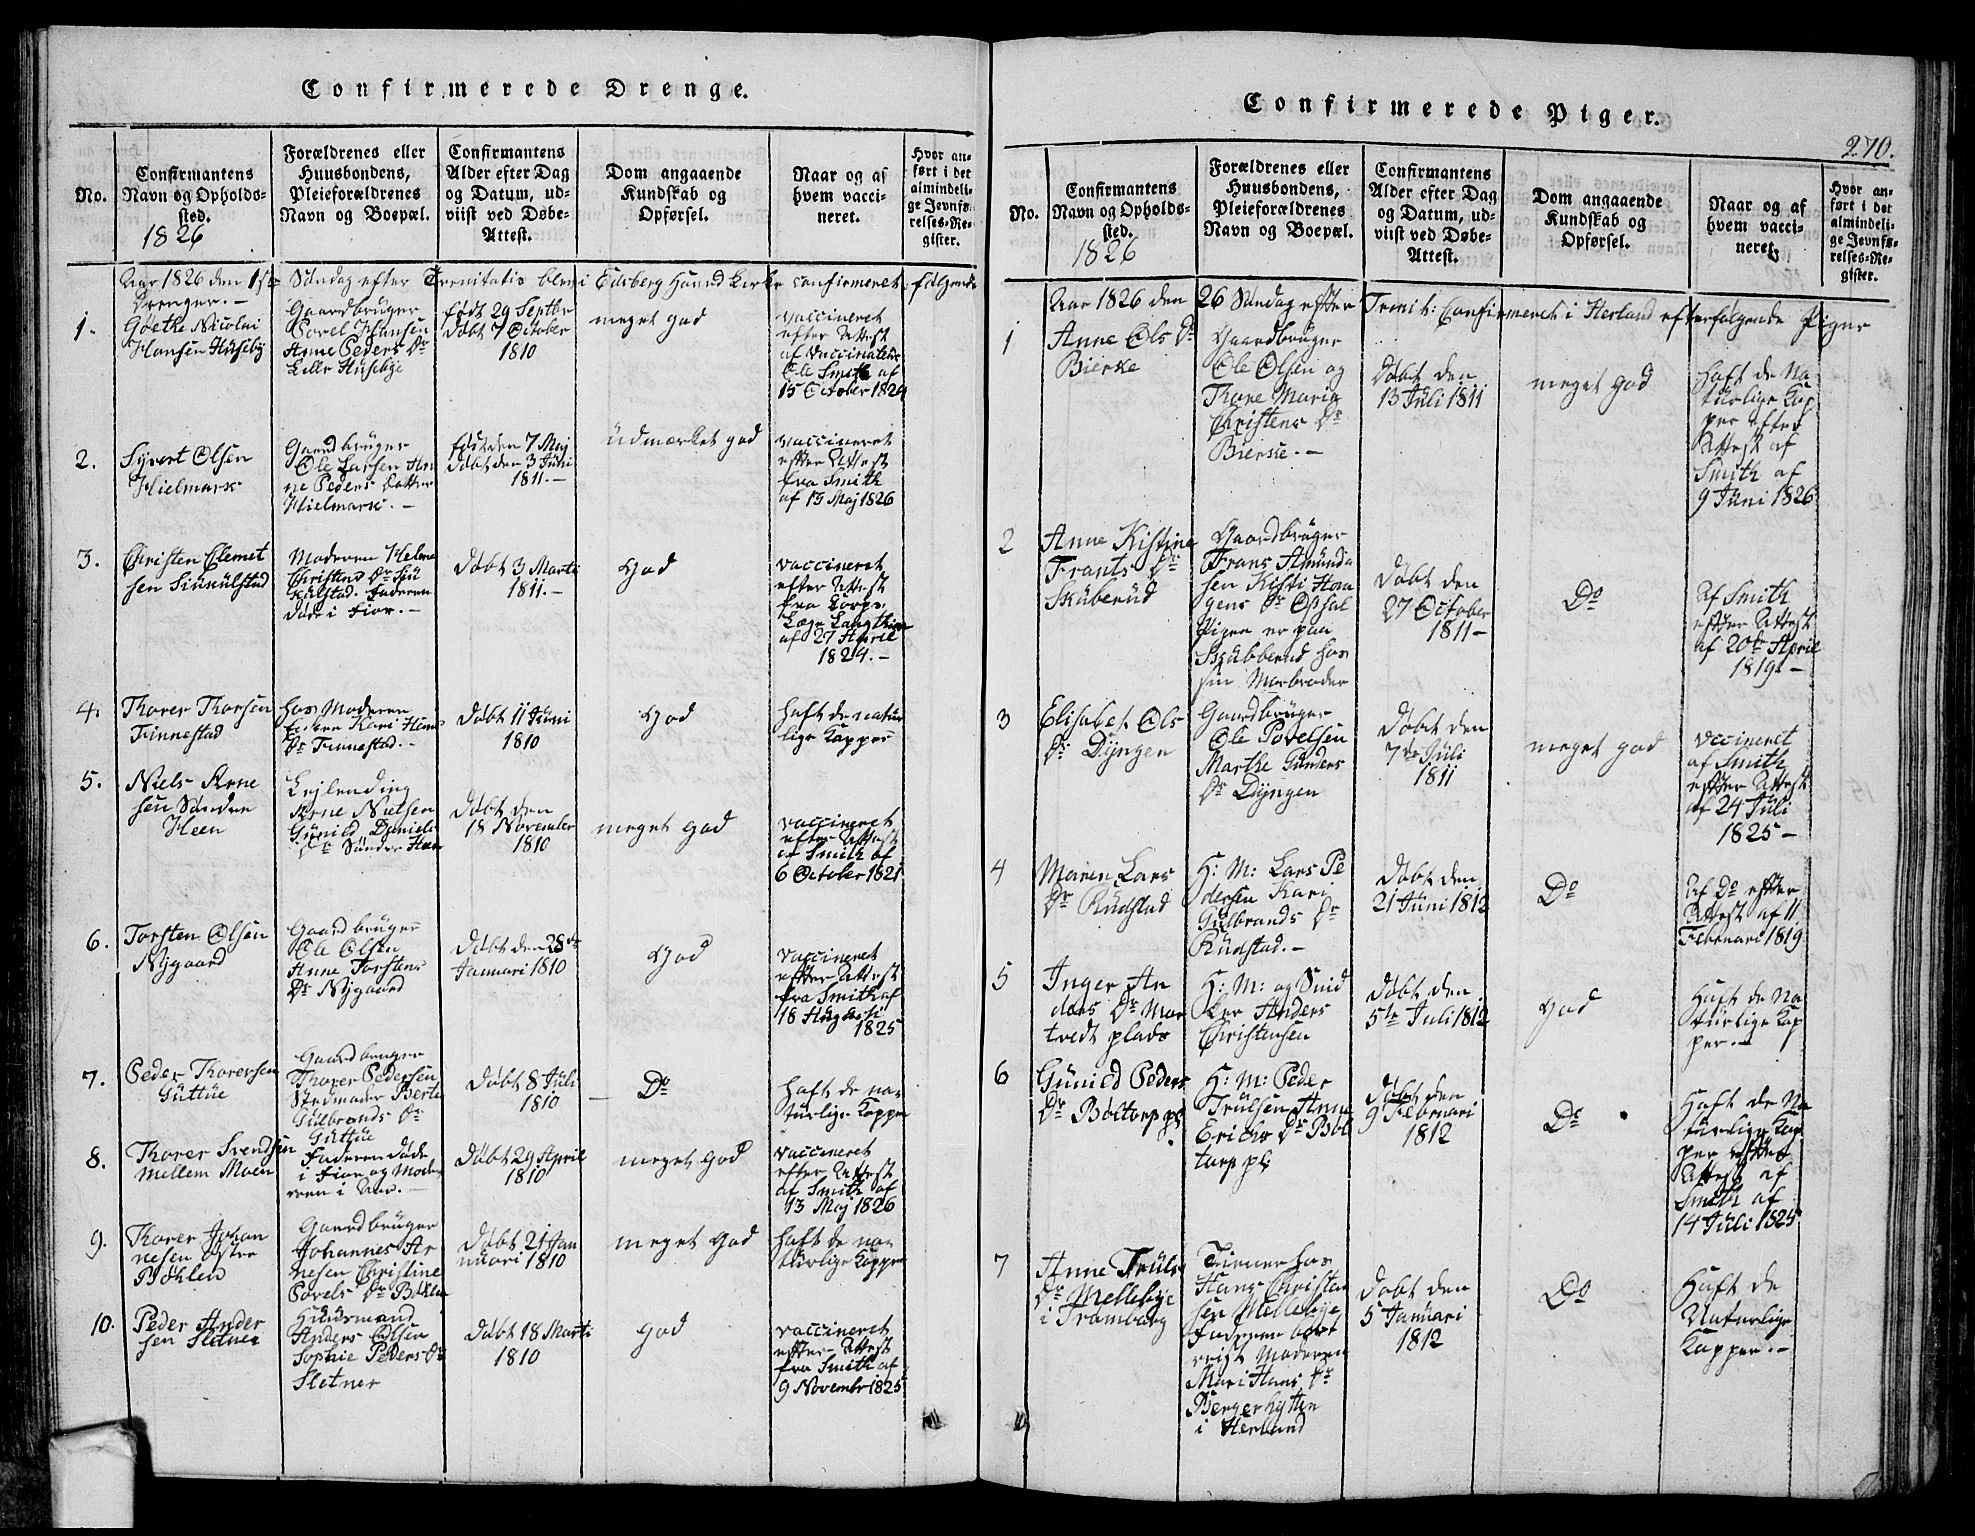 Confirmerede Drenge.
No.
Confirmantens
Navn og Opholds-
sted.
1826
Forældrenes eller
Huusbondens,
Pleieforældrenes
Navn og Boepæl.
Confirmantens
Alder efter Dag
og Datum, ud-
viist ved Døbe-
Attest.
Dom angaaende
Kundskab og
Opførsel.
Naar og af
hvem vacci-
neret.
Hvor an-
ført i det
almindeli-
ge Jevnfø-
relses-Re-
gister.
Aar 1826 den 1ste Søndag efter Trenitatis blev i Eidsberg Hoved Kirke confirmeret følgende
Drenger. -
1.
Göethe Nicolai
Hansen Huseby
Gaardbrüger
Povel Hansen
Anne Peders Dr
Lille Huseby
født 29 Septbr
døbt 7 October
1810
meget god
vaccineret
efter Attest
af Vaccinateur
Ole Smith af
15 October 1824
2.
Syvert Olsen
Hielmark
Gaardbrüger
Ole Larsen An
ne Peders Datter
Hielmark. -
født den 7 Maj
døbt den 3 Juni
1811. -
Udmærket god
vaccineret
efter Attest
fra Smith
af 13 Maj 1826
3.
Christen Clemet
sen Skükülstad
Moderen Helene
Christens Dr Skü
külstad. Faderen
døde i Fior. -
Døbt 3 Marti
1811. -
God
vaccineret
efter Attest
fra Corps
Læge
af 27 April
1824. -
4.
Thorer Thorsen
Finnestad
hos Moderen
Enken Kari Hans
Dr Finnestad. -
Døbt 11 Jüni
1810
God
haft de natür
lige Kopper
5.
Niels Arne
sen Søndre
Heen
Lejlending
Arne Nielsen
Gunild Daniels
Dr Søndre Heen
Døbt den
18 November
1810
meget god
vaccineret
efter Attest
af Smith af
6 October 1821
6.
Torsten Olsen
Nygaard
Gaardbrüger
Ole Olsen
Anne Torstens
Dr Nygaard
Døbt den 28de
Januari 1810
God
vaccineret
efter Attest
fra Smith af
18 Augusti
1825
7.
Peder Thorersen
Güttüe
Gaardbruger
Thorer Pedersen
Stedmoder Berte
Gulbrands Dr
Güttüe
Døbt 8 Juli
1810
Do
haft de na-
türlige Kopper
8.
Thorer Svendsen
Mellem Moen
Faderen døde
i Fior og Mode
ren i Aar. -
Døbt 29 April
1810
meget God
vaccineret
efter Attest
af Smith af
13 Maj 1826
9.
Thorer Johan
nesen Østre
Bøhlen
Gaardbrüger
Johannes Ar
nesen Christine
Povels Dr Bøhlen
Døbt 21 Jan
nuari 1810
meget God
haft de na-
türlige Kopper
10.
Peder Ander
sen Sletner
Huusmand
Anders Olsen
Sophie Peders Dr
Sletner
Døbt 18 Marti
1810
God
vaccineret
efter Attest
fra Smith af
9 Novembr 1825
Confirmerede Piger.
270.
No.
Confirmantens
Navn og Opholds-
sted.
1826
Forældrenes eller
Huusbondens,
Pleieforældrenes
Navn og Boepæl.
Confirmantens
Alder efter Dag
og Datum, ud-
viist ved Døbe-
Attest.
Dom angaaende
Kundskab og
Opførsel.
Naar og af
hvem vacci-
neret.
Hvor an-
ført i det
almindeli-
ge Jevnfø-
relses-Re-
gister.
Aar 1826 den 26 Søndag efter Trenit: Confirmeret i Herland efterfølgende Piger
1
Anne Ols Dr
Bierke
Gaardbrüger
Ole Olsen og
Thore Maria
Christens Dr
Bierke. -
Døbt den
13 Juli 1811
meget god
haft de Na
türlige Kop
per efter
Attest af
Smith af
9 Jüni 1826
2
Anne Kistine
Frants Dr
Sküberüd
Gaardbrüger
Frans Amünd
sen Kisti Haa
gens Dr Opsal
Pigen er paa
Skubberud hos
sin Morbroder
Døbt den
27 October
1811 -
Do
Af Smith
efter Attest
af 20de April
1819. -
3
Elisabet Ols
Dr Dyngen
Gaardbrüger
Ole Povelsen
Marthe Gunders
Dr Dyngen
Døbt den
7de Juli
1811
meget god
vccineret
af Smith
efter Attest
af 24 Juli
1825 -
4
Maren Lars
Dr Rudstad
H: M: Lars Pe
dersen Kari
Gülbrands Dr
Rudstad. -
Døbt den
21 Jüni 1812
Do
Af Do efter
Attest af 11
Februari 1819
5
Inger An
ders Dr Mor
tvedt plads
H: M: og Snid
ker Anders
Christensen
Døbt den
5te Juli 1812
god
Haft de Na
türlige Kop
per. -
6
Günild Peders
Dr Böltorp pl.
H: M: Peder
Trülsen Anne
Erichs Dr Böl
torp pl
Døbt den
9 Februari
1812
Do
Haft de Na
türlige Kop
per efter
Attest af
Smith af
14 Juli 1825
7
Anne Truls
Dr Mellebye
i Tramborg
Tiener hos
Hans Christen
sen Mellebye
Faderen bort
reist Moderen
Mari Hans Dr
Bergerhytten
i Herland
Døbt den
5 Januari
1812
Do
Haft de
Naturlige
Kopper. -